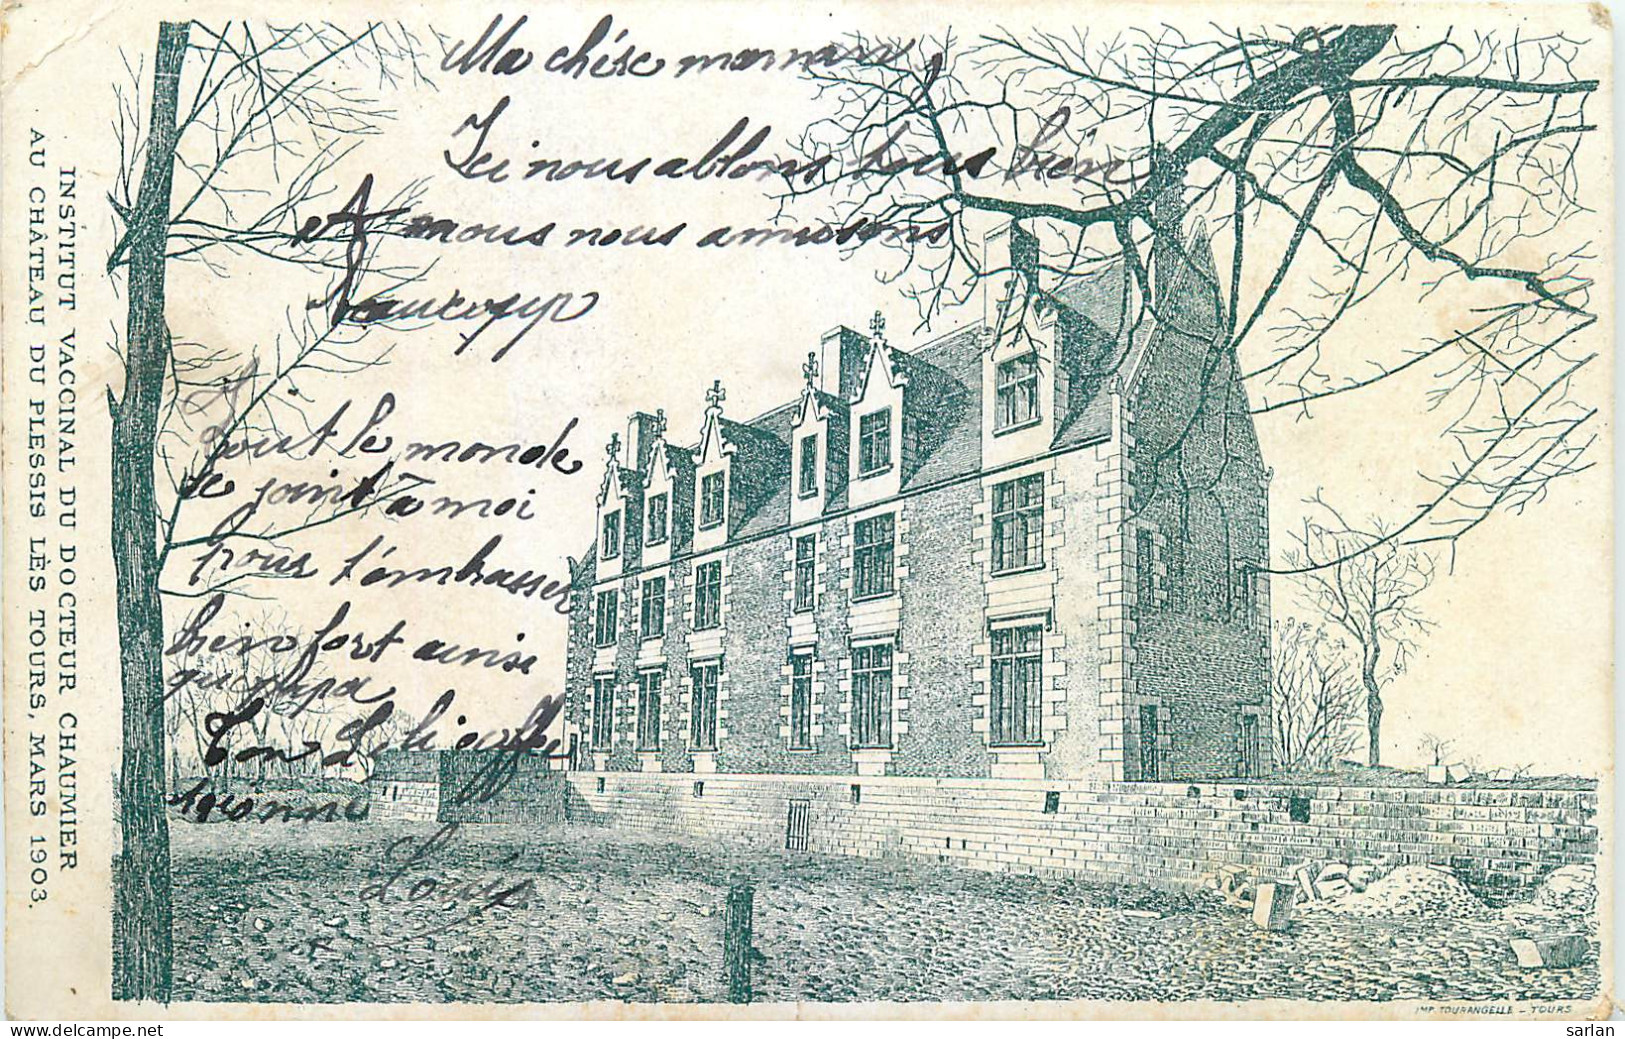 Ma chère maman,
Ici nous allons tous bien
et nous nous amusons
beaucoup
Tout le monde
se joint à moi
pour t'embrasser
bien fort ainsi
qu papa
Ton
Louis
INSTITUT VACCINAL DU DOCTEUR CHAUMIER
AU CHÂTEAU DU PLESSIS LÈS TOURS, MARS 1903.
IMP. TOURANGELLE - TOURS
Sarlan